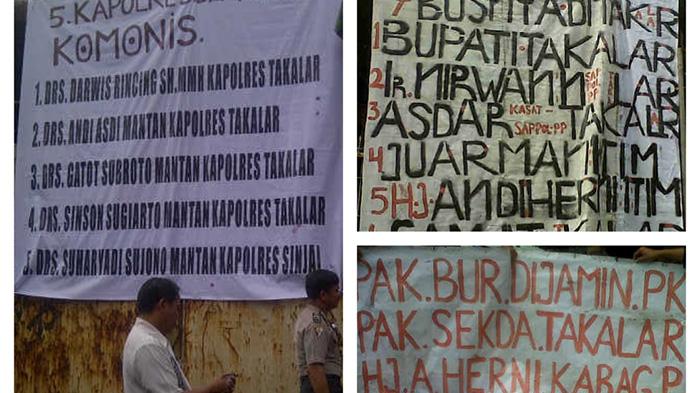 5.KAPOLRES
KOMONIS.
1. DRS. DARWIS RINCING SH,MMH KAPOLRES TAKALAR
2. DRS. ANDI ASDI MANTAN KAPOLRES TAKALAR
3. DRS. GATOT SUBROTO MANTAN KAPOLRES TAKALAR
4. DRS. SINSON SUGIARTO MANTAN KAPOLRES TAKALAR
5. DRS. SUHARYADI SUJONO MANTAN KAPOLRES SINJAI
1 BUPATI.TAKALAR
2 Ir. NIRWAN
3 ASDAR KASAT- SAPPOL-PP TAKALAR
4 JUARMAN TIM
5 HJ. ANDI HERNI TIM
PAK.BUR.DIJAMIN.PK
PAK.SEKDA.TAKALAR
HJ.A.HERNI KABAG.P